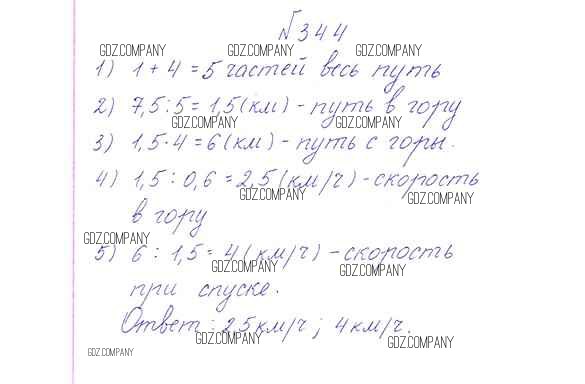 №344
GDZ.COMPANY GDZ.COMPANY GDZ.COMPANY
1) 1 + 4 = 5 частей весь путь
2) 7,5 : 5 = 1,5 (км) - путь в гору
GDZ.COMPANY GDZ.COMPANY
3) 1,5 · 4 = 6 (км) - путь с горы.
4) 1,5 : 0,6 = 2,5 (км/ч) - скорость
GDZ.COMPANY GDZ.COMPANY
в гору
GDZ.COMPANY
5) 6 : 1,5 = 4 (км/ч) - скорость
GDZ.COMPANY GDZ.COMPANY
при спуске.
Ответ : 2,5 км/ч ; 4 км/ч.
GDZ.COMPANY GDZ.COMPANY
GDZ.COMPANY